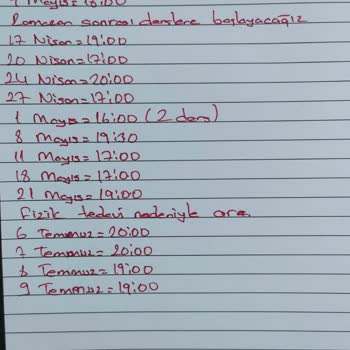 Mayıs = 18:00
Ramazan sonrası derslere başlayacağız
17 Nisan = 19:00
20 Nisan = 17:00
24 Nisan = 20:00
27 Nisan = 17:00
1 Mayıs = 16:00 (2 ders)
8 Mayıs = 19:30
11 Mayıs = 17:00
18 Mayıs = 17:00
21 Mayıs = 19:00
Fizik tedavi nedeniyle ara.
6 Temmuz = 20:00
7 Temmuz = 20:00
8 Temmuz = 19:00
9 Temmuz = 19:00